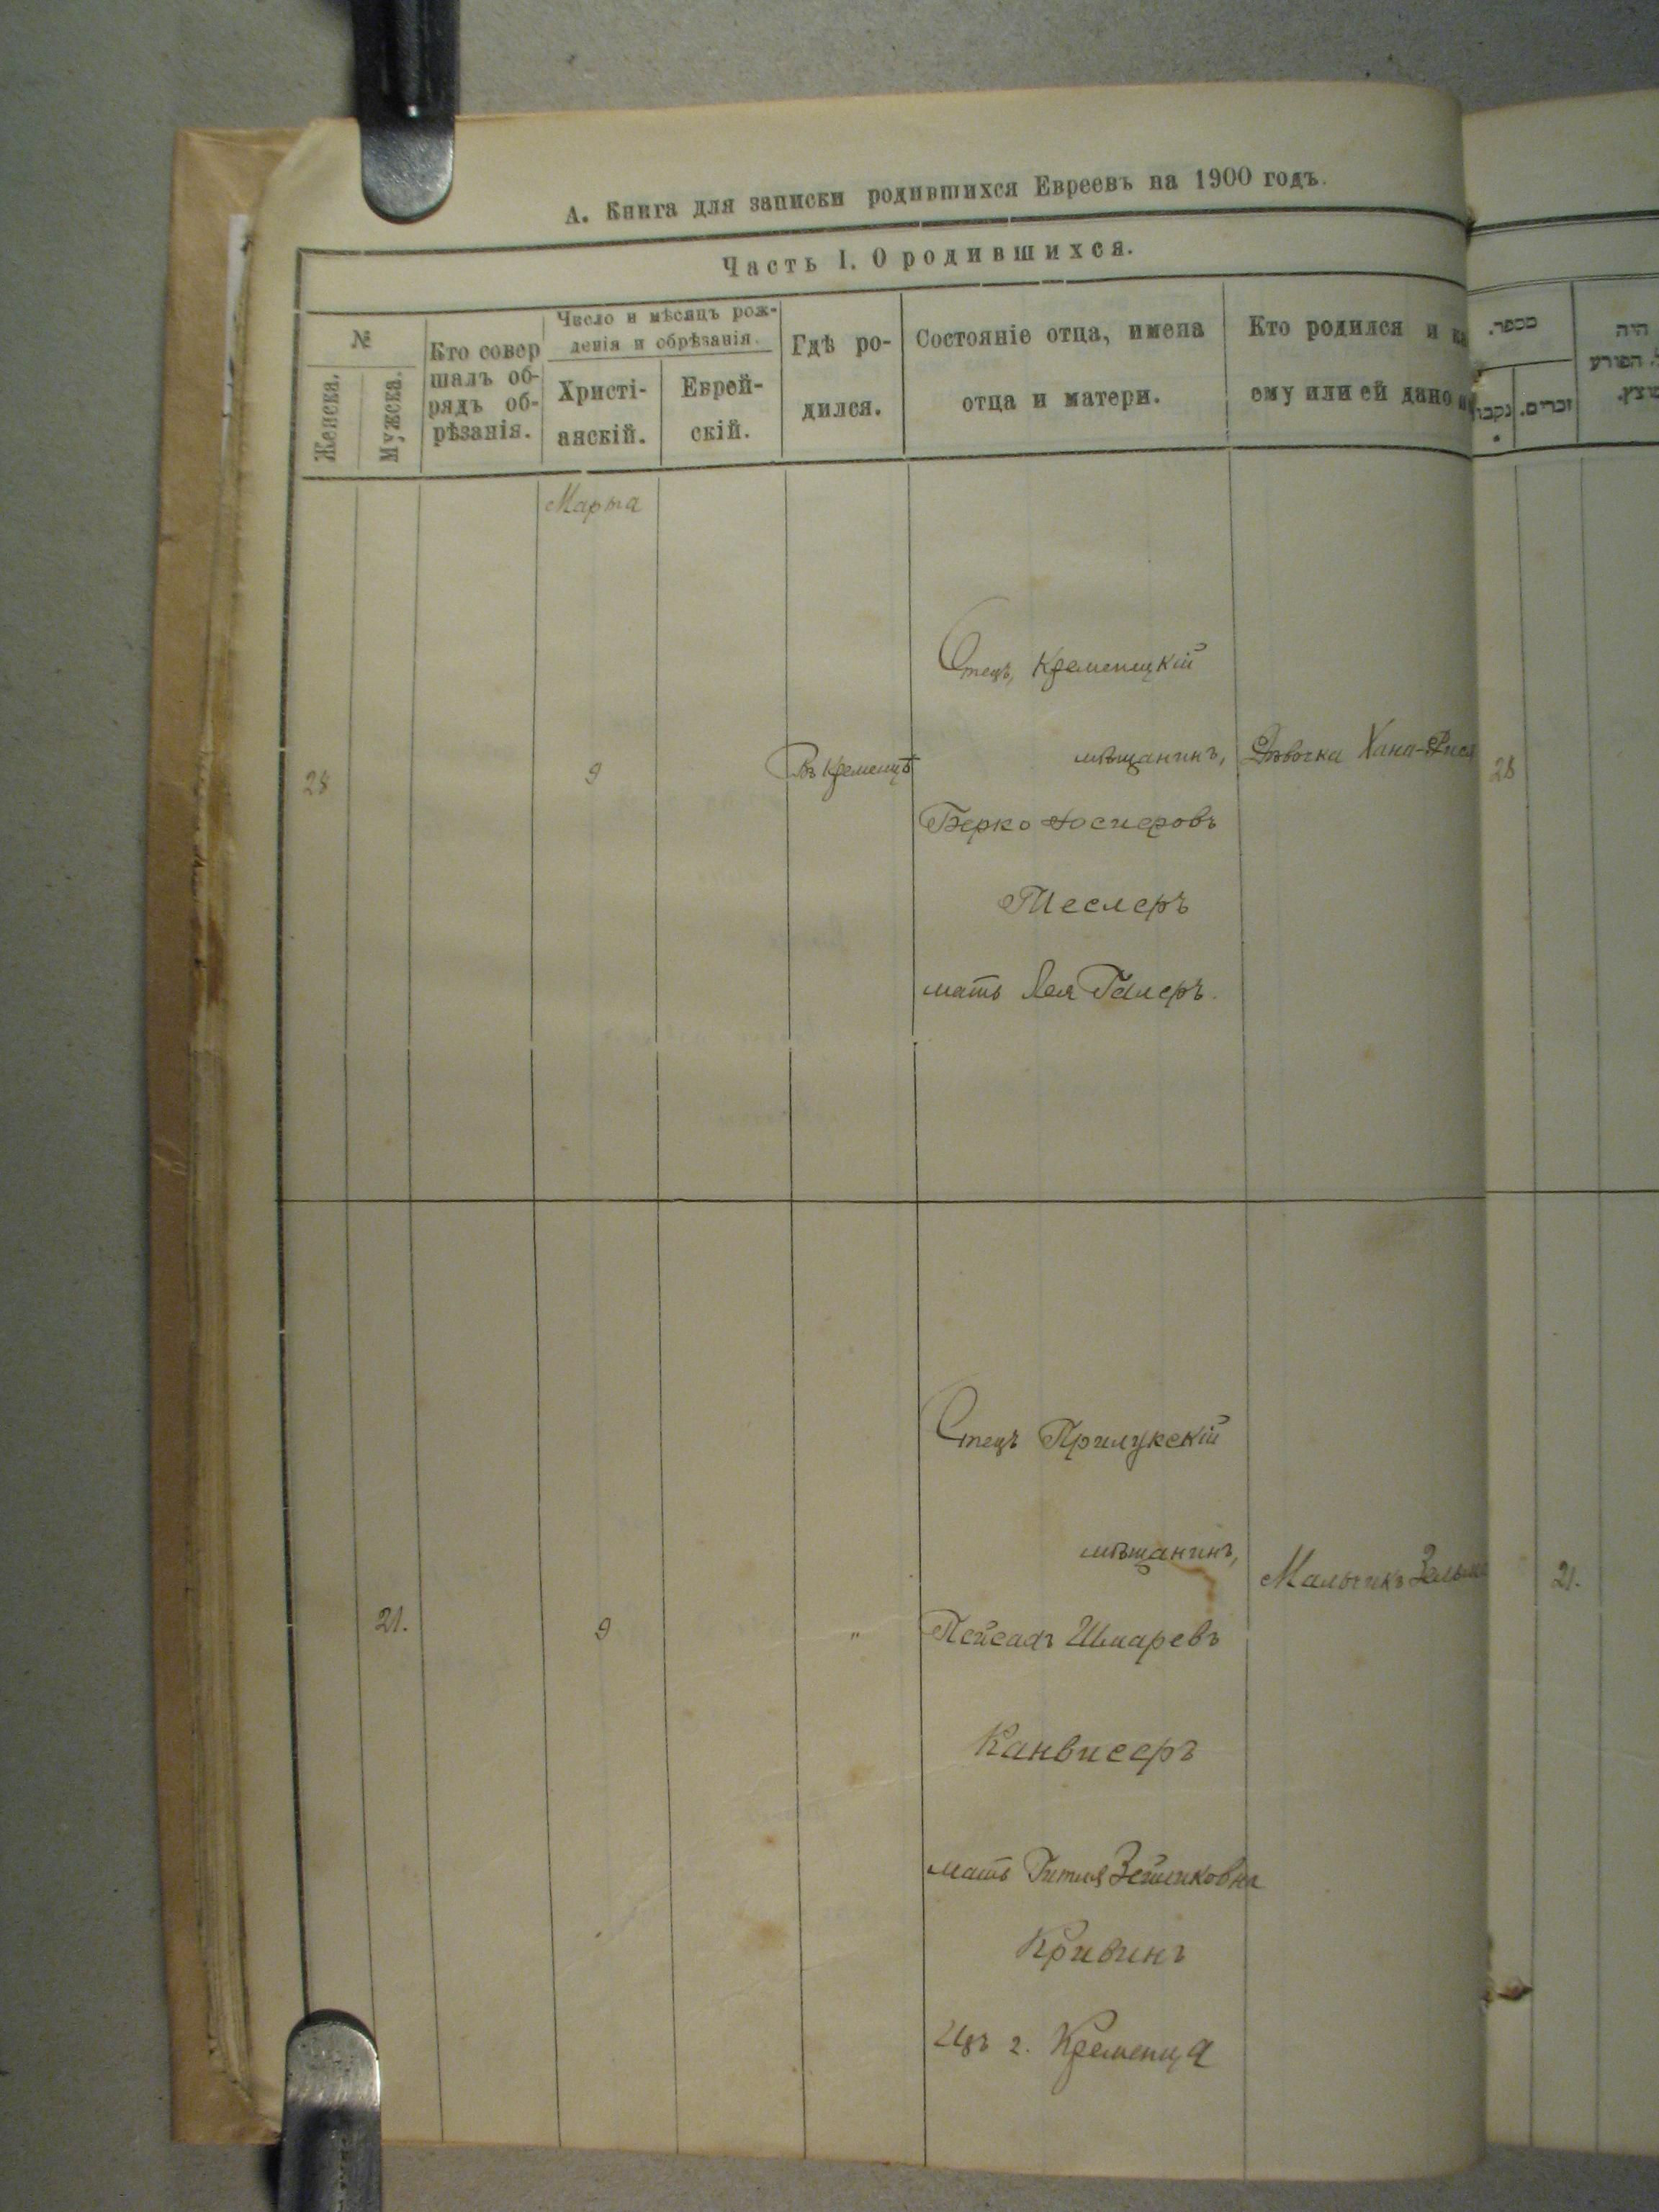 А. Книга для записки родившихся Евреевъ на 1900 годъ.
Часть I. О родившихся.
№
Женска.
Мужска.
Кто совер
шалъ об-
рядъ об-
рѣзанія.
Число и мѣсяцъ рож-
денія и обрѣзанія.
Христі-
анскій.
Еврей-
скій.
Гдѣ ро-
дился.
Состояніе отца, имена
отца и матери.
Кто родился и
ему или ей дано
מספר.
זכרים.
היה
הפורע
Марта
28
9
Въ Кременцѣ
Отецъ, Кременецкій
мѣщанинъ,
Берко
Теслеръ
мать Лея Галеръ.
Дѣвочка Хана-
28
21.
9
"
Отецъ Прилукскій
мѣщанинъ,
Пейсахъ Шмаревъ
Канвисеръ
мать Гитля Зейликовна
Кривинъ
Изъ г. Кременца
Мальчикъ
21.